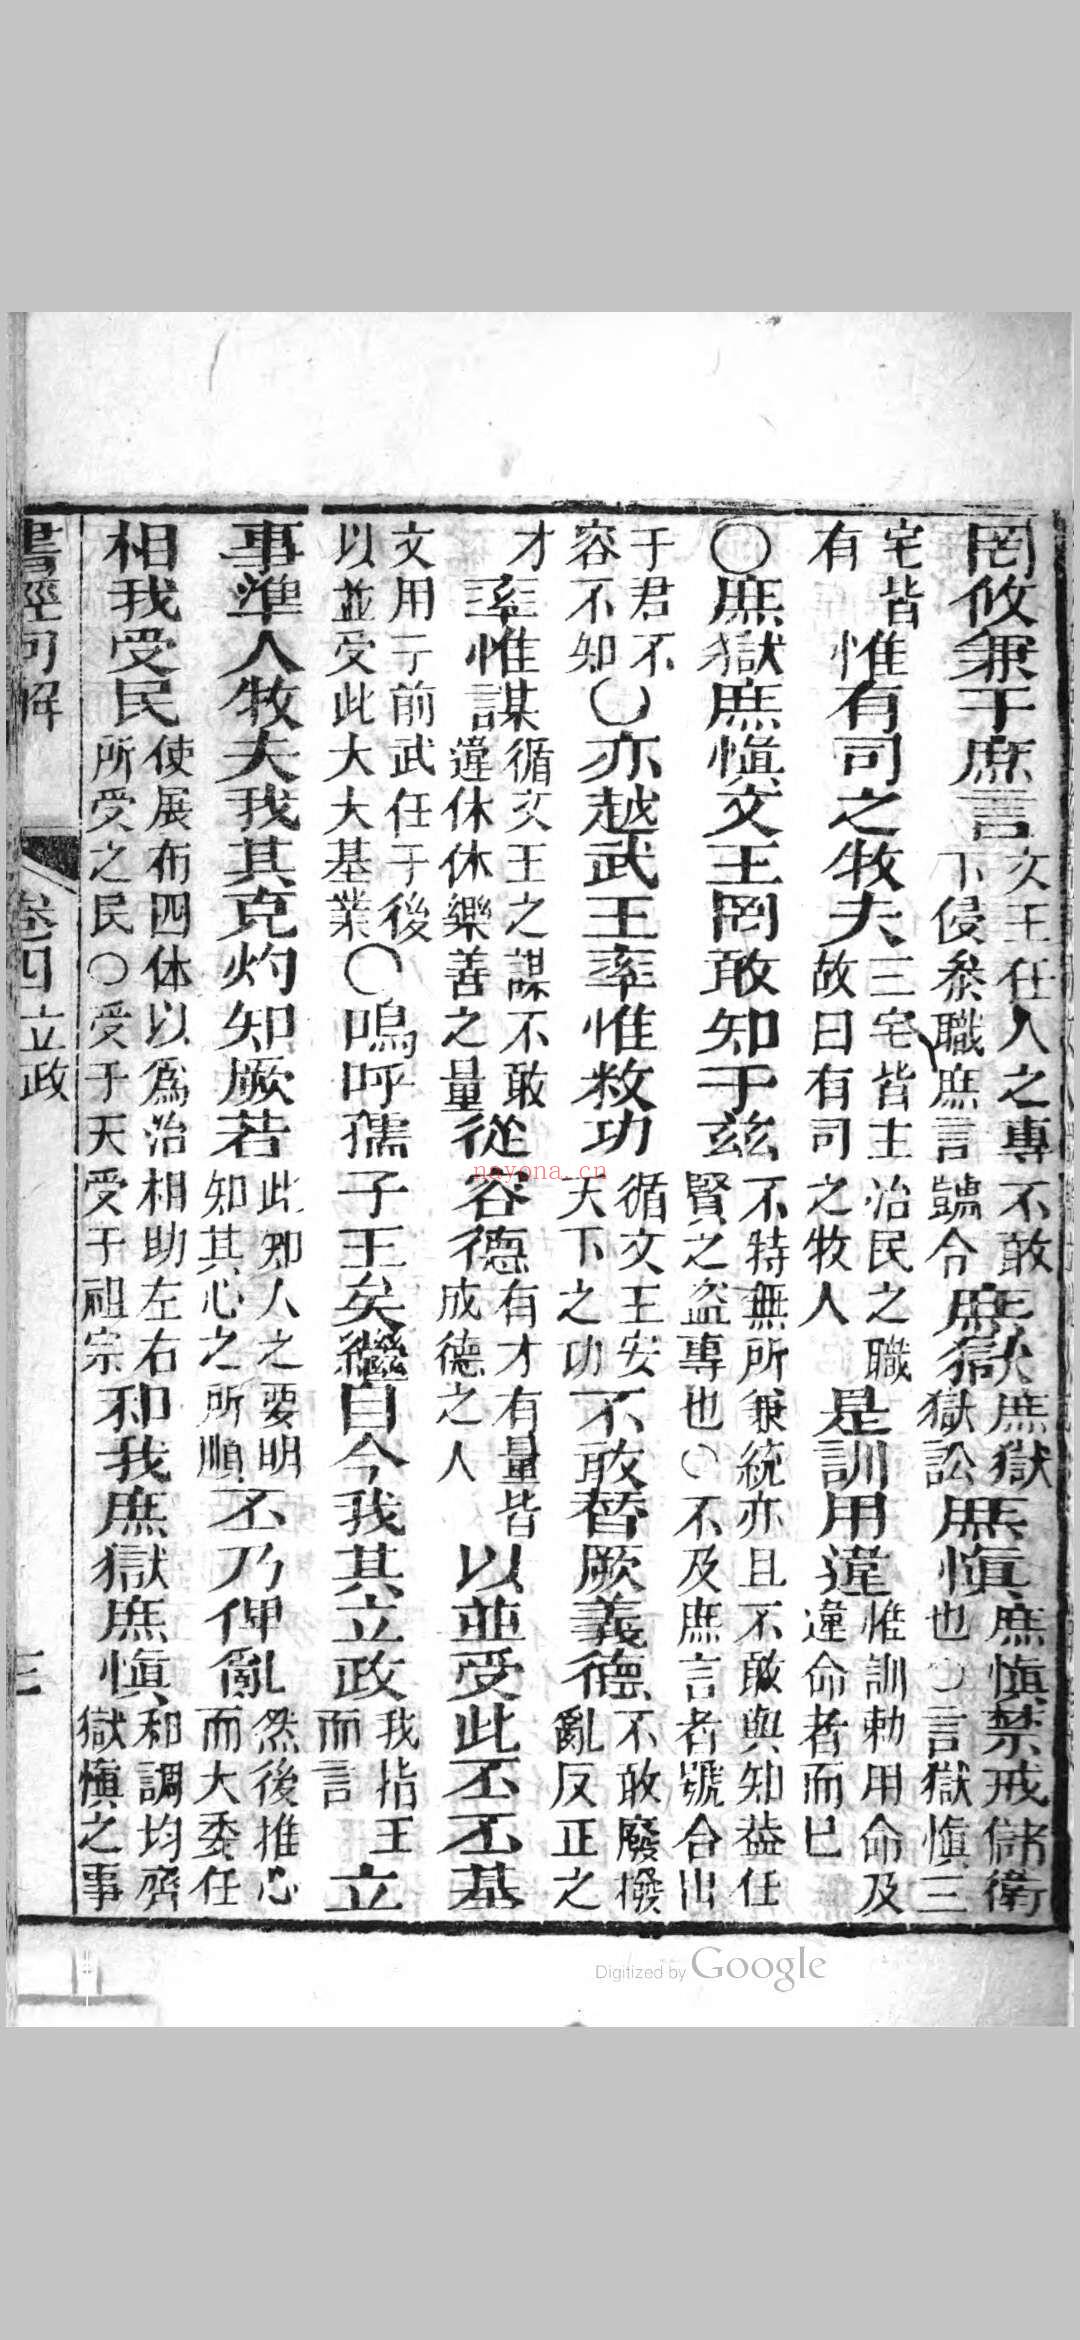 罔攸兼于庶言文王任人之專不敢下侵叅職庶言號令庶獄庶獄獄訟庶慎庶慎禁戒儲衛也〇言獄慎三
宅皆有惟有司之牧夫三宅皆主治民之職故曰有司之牧人是訓用違惟訓勅用命及違命者而已
〇庶獄庶慎文王罔敢知于玆不特無所兼統亦且不敢與知益任賢之益專也〇不及庶言者號令出
于君不容不知〇亦越武王率惟敉功循文王安天下之功不敢替厥義德不敢廢撥亂反正之
才率惟謀循文王之謀不敢違休休樂善之量從容德有才有量皆成德之人以並受此丕丕基
文用于前武任于後以並受此大大基業〇嗚呼孺子王矣繼自今我其立政我指王而言立
事準人牧夫我其克灼知厥若此卽人之要明知其心之所順丕乃俾亂然後推心而大委任
相我受民使展布四体以爲治相助左右所受之民〇受于天受于祖宗和我庶獄庶慎和調均齊獄慎之事
書經句解 卷四 立政 三
nayona.cn
Digitized by Google